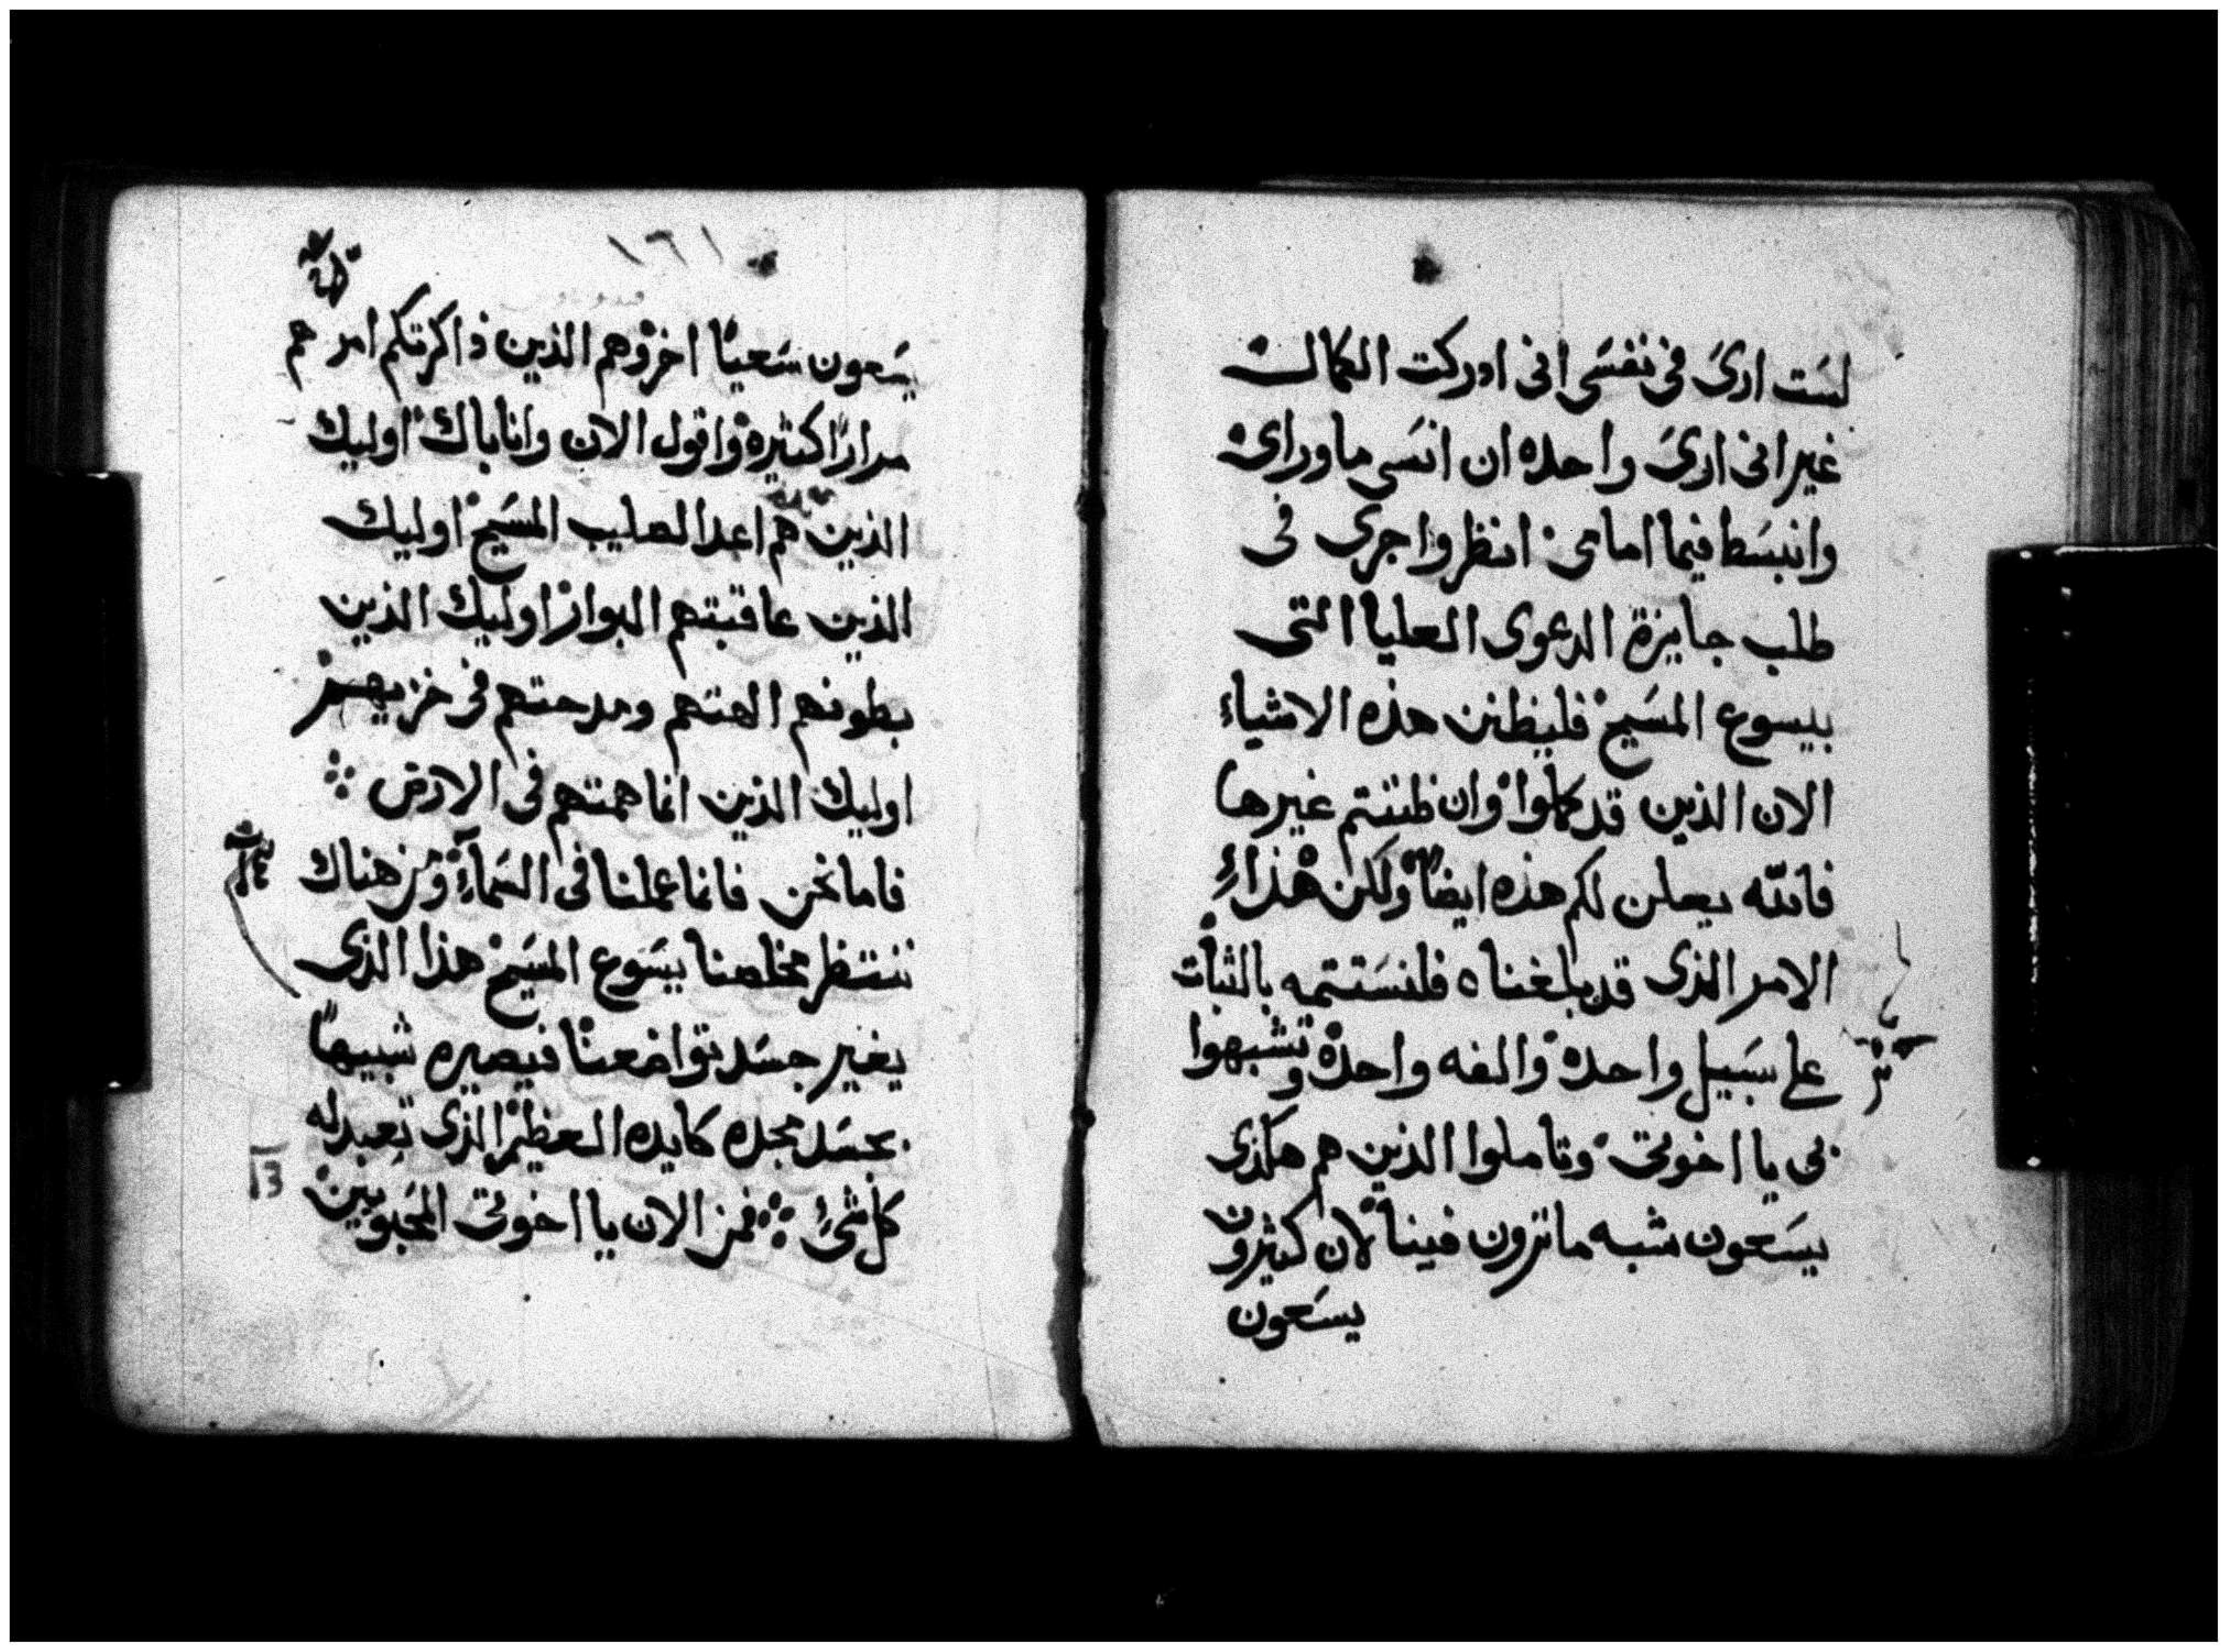 لست ارى في نفسي اني ادركت الكمال
غير اني ارى واحده ان انسى ماوراي
وانبسط فيما امامي انظر واجرى في
طلب جايزة الدعوى العليا التى
بيسوع المسيح فليظنن هذه الاشياء
الان الذين قد كملوا وان ظننتم غيرها
فالله يعلن لكم هذه ايضاً ولكن هذاء
الامر الذى قد بلغناه فلنستتمه بالثبات
على سبيل واحدة والفه واحدة وتشبهوا
بي يا اخوتي وتاملوا الذين هم هكذى
يسعون شبه ماترون فينا لان كثيرون
يسعون
١٦١
يسعون سعياً اخر وهم الذين ذاكرتكم امرهم
مراراً كثيره واقول الان وانا باك اوليك
الذين هم اعدا لصليب المسيح اوليك
الذين عاقبتهم البوار اوليك الذين
بطونهم الهتهم ومدحتهم في خزيهم
اوليك الذين انما همتهم في الارض
فاما نحن فانما عملنا في السمآء ومن هناك
ننتظر مخلصنا يسوع المسيح هذا الذى
يغير جسد تواضعنا فيصيره شبيهاً
بجسد مجده كايده العظيم الذى تعبد له
كل شئ فمن الان يا اخوتي المحبوبين